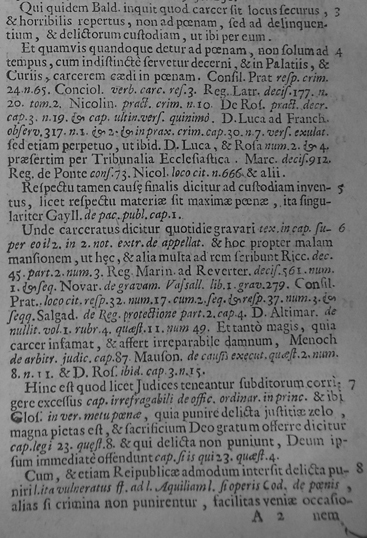 Qui quidem Bald. inquit quod carcer sit locus securus, 3
& horribilis repertus, non ad pœnam, sed ad delinquen-
tium, & delictorum custodiam, ut ibi per eum.
Et quamvis quandoque detur ad pœnam, non solum ad 4
tempus, cum indistinctè servetur decerni, & in Palatiis, &
Curiis, carcerem cædi in pœnam. Consil. Prat resp. crim.
24.n.65. Conciol. verb. carc. res. 3. Reg. Latr. decis. 177. n.
20. tom. 2. Nicolin. pract. crim. n. 10. De Ros. pract. decr.
cap. 3. n. 19. & cap. ultin. vers. quinimò. D. Luca ad Franch.
observ. 317. n. 1. & 2. & in prax. crim. cap. 30. n. 7. vers. exulat.
sed etiam perpetuo, ut ibid. D. Luca, & Rosa num. 2. & 4.
præsertim per Tribunalia Ecclesiastica. Marc. decis. 912.
Reg. de Ponte cons. 73. Nicol. loco cit. n. 666. & alii.
Respectu tamen causæ finalis dicitur ad custodiam inven- 5
tus, licet respectu materiæ sit maximæ pœnæ, ita singu-
lariter Gayll. de pac. publ. cap. 1.
Unde carceratus dicitur quotidie gravari tex. in cap. su- 6
per eo il 2. in 2. not. extr. de appellat. & hoc propter malam
mansionem, ut hęc, & alia multa ad rem scribunt Ricc. dec.
45. part. 2. num. 3. Reg. Marin. ad Reverter. decis. 561. num.
1. & seq. Novar. de gravam. Vasall. lib. 1. grav. 279. Consil.
Prat., loco cit. resp. 32. num. 17. cum 2. seq. & resp. 37. num. 3. &
seqq. Salgad. de Reg. protectione part. 2. cap. 4. D. Altimar. de
nullit. vol. 1. rubr. 4. quæst. 11. num 49. Et tantò magis, quia
carcer infamat, & affert irreparabile damnum, Menoch
de arbitr. judic. cap. 87. Mauson. de causis execut. quæst. 2. num.
8. n. 11. & D. Ros. ibid. cap. 3. n. 15.
Hinc est quod licet Judices teneantur subditorum corri- 7
gere excessus cap. irrefragabili de offic. ordinar. in princ. & ibi
Glos. in ver. metu pœnæ, quia punire delicta justitiæ zelo,
magna pietas est, & sacrificium Deo gratum offerre dicitur
cap. legi 23. quæst. 8. & qui delicta non puniunt, Deum ip-
sum immediatè offendunt cap. si is qui 23. quæst. 4.
Cum, & etiam Reipublicæ admodum intersit delicta pu- 8
niri l. ita vulneratus ff. ad l. Aquiliam l. si operis Cod. de pœnis,
alias si crimina non punirentur, facilitas veniæ occasio-
A 2 nem